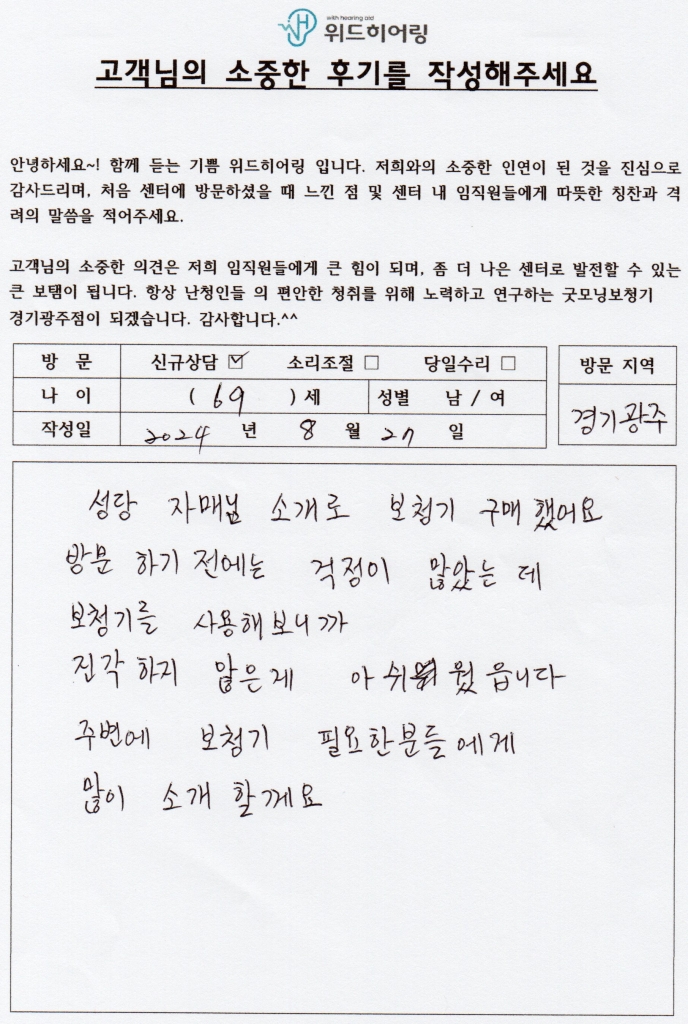 with hearing aid
위드히어링
고객님의 소중한 후기를 작성해주세요
안녕하세요~! 함께 듣는 기쁨 위드히어링 입니다. 저희와의 소중한 인연이 된 것을 진심으로
감사드리며, 처음 센터에 방문하셨을 때 느낀 점 및 센터 내 임직원들에게 따뜻한 칭찬과 격
려의 말씀을 적어주세요.
고객님의 소중한 의견은 저희 임직원들에게 큰 힘이 되며, 좀 더 나은 센터로 발전할 수 있는
큰 보탬이 됩니다. 항상 난청인들 의 편안한 청취를 위해 노력하고 연구하는 굿모닝보청기
경기광주점이 되겠습니다. 감사합니다.^^
방 문 신규상담 ☑ 소리조절 □ 당일수리 □
나 이 ( 69 ) 세 성별 남 / 여
작성일 2024 년 8 월 27 일
방문 지역
경기광주
성당 자매님 소개로 보청기 구매 했어요
방문 하기 전에는 걱정이 많았는 데
보청기를 사용해보니까
진각 하지 않은게 아 쉬웠 읍니다
주변에 보청기 필요한분들에게
많이 소개 할께요